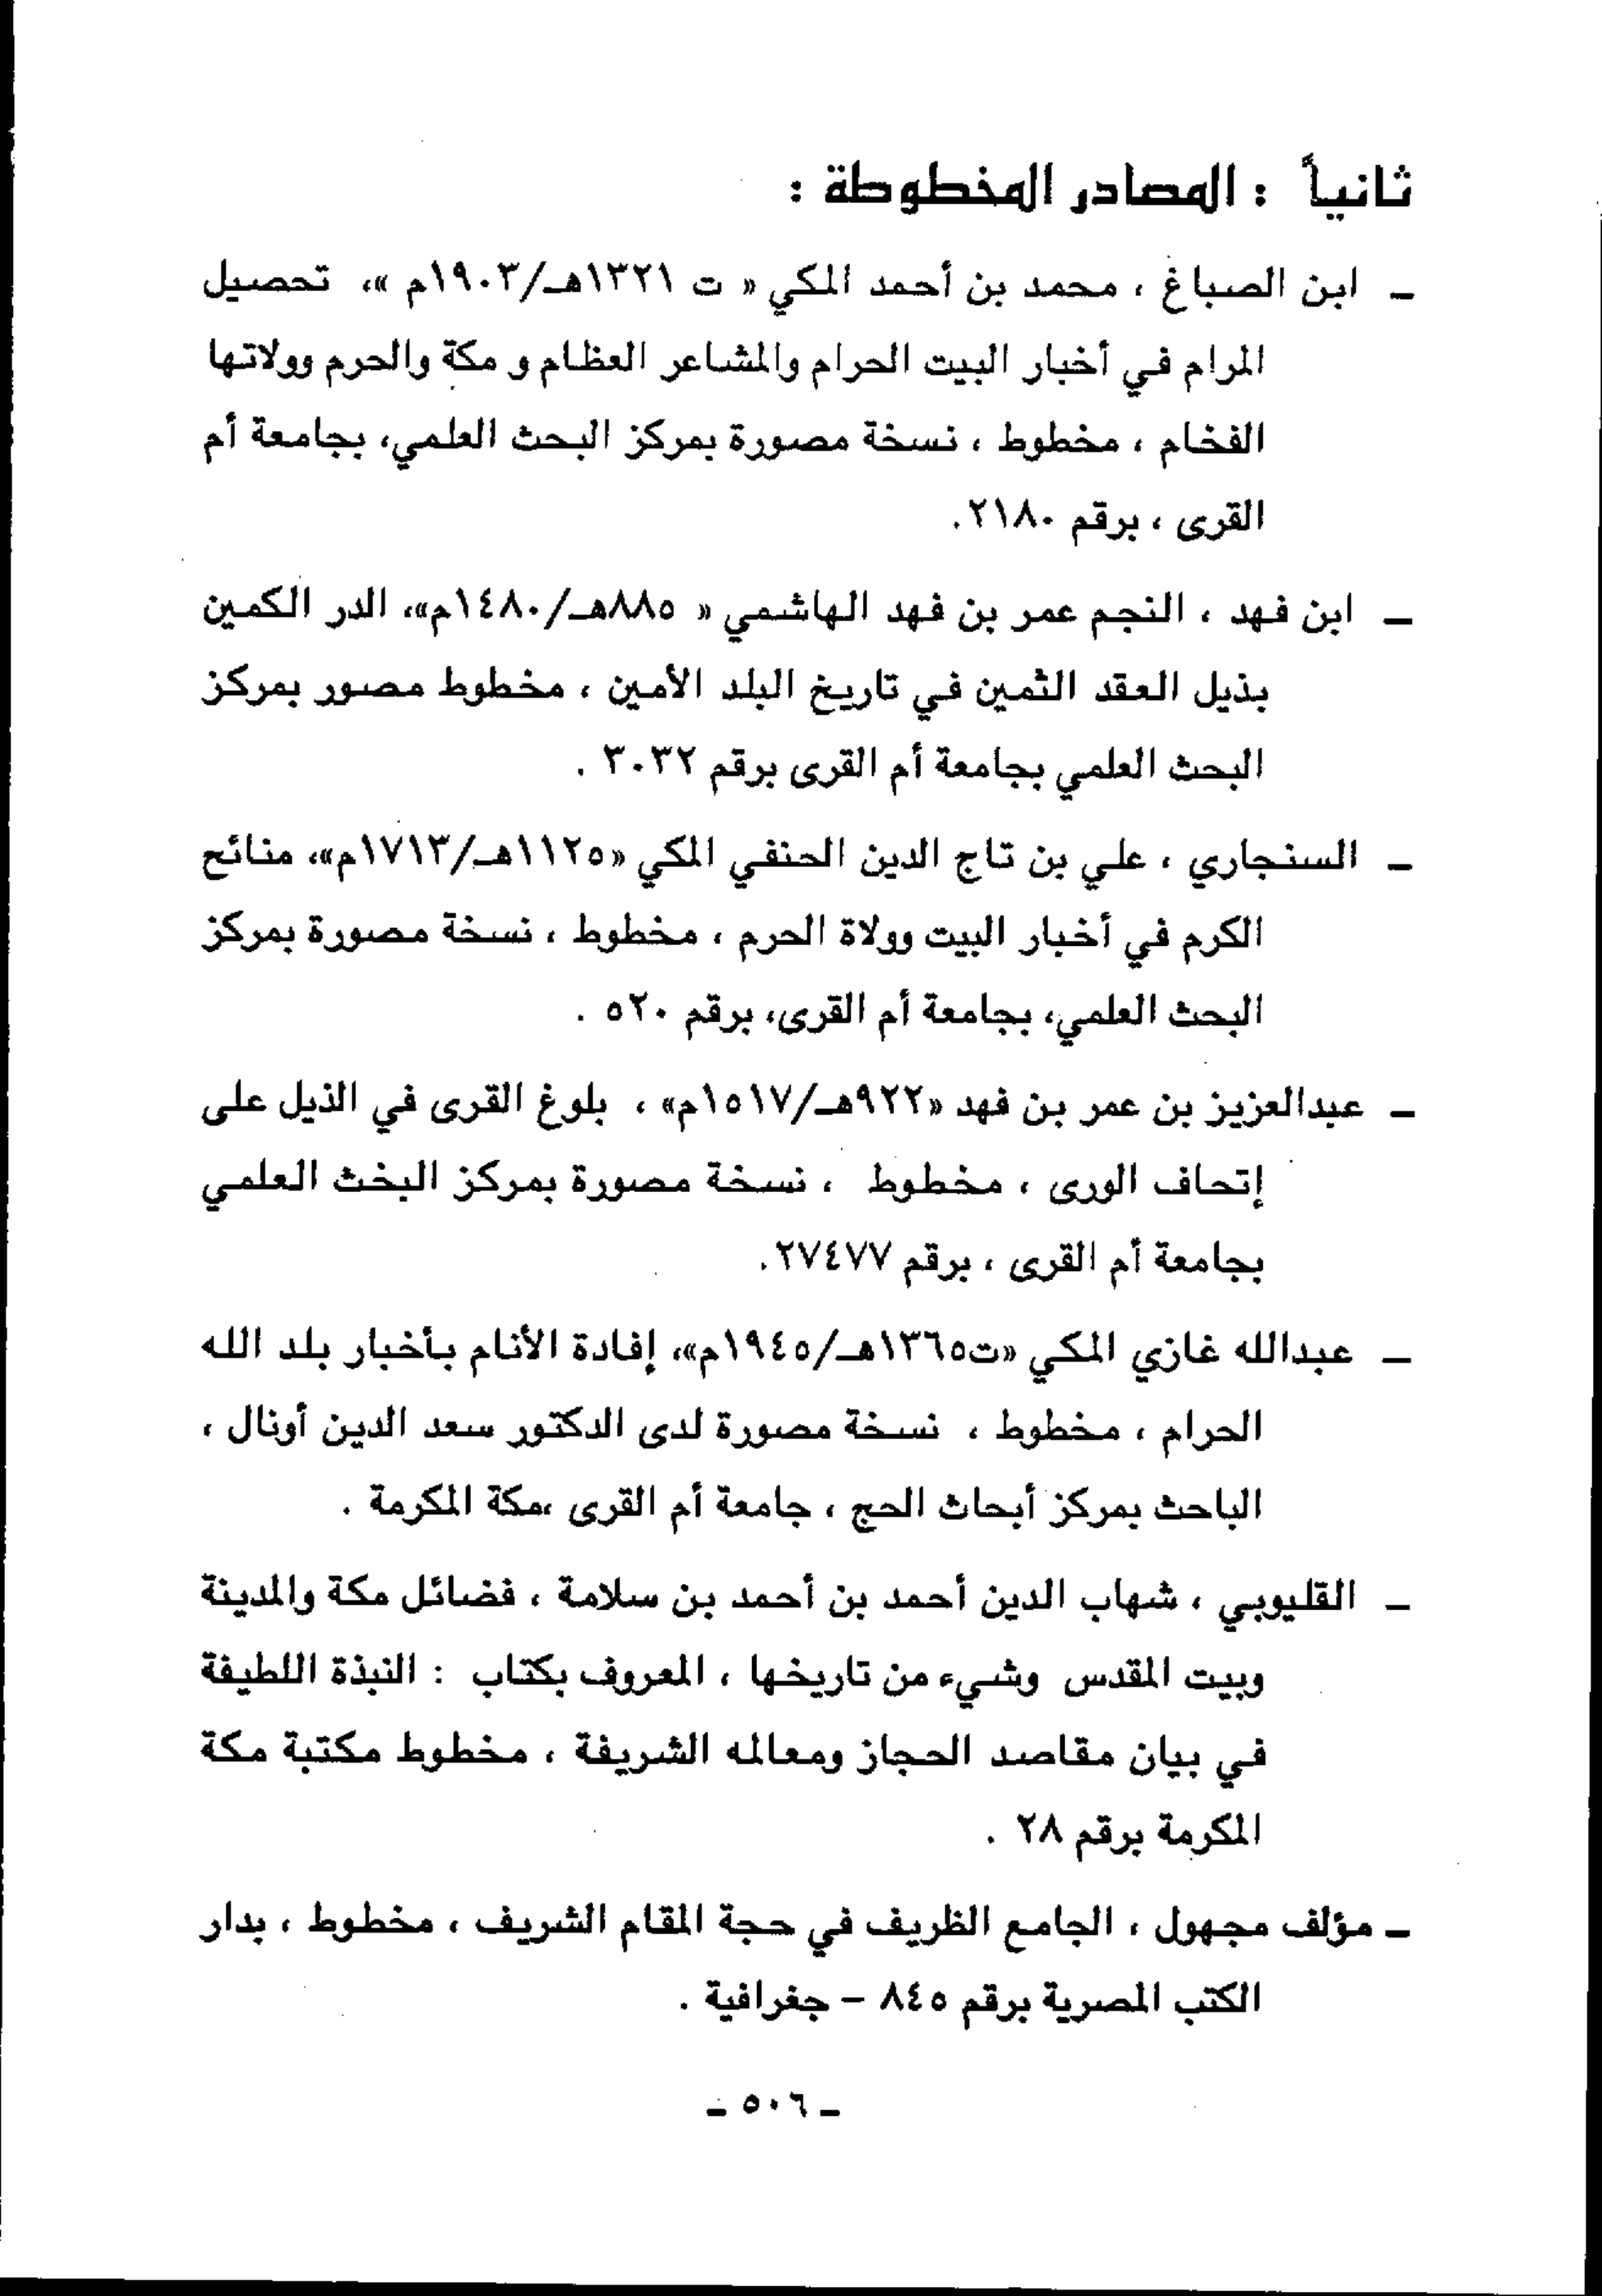 ثانياً : المصادر المخطوطة :
ـ ابن الصباغ ، محمد بن أحمد المكي « ت ١٣٢١هـ/١٩٠٣م »، تحصيل
المرام في أخبار البيت الحرام والمشاعر العظام و مكة والحرم وولاتها
الفخام ، مخطوط ، نسخة مصورة بمركز البحث العلمي، بجامعة أم
القرى ، برقم ٢١٨٠.
ـ ابن فهد ، النجم عمر بن فهد الهاشمي « ٨٨٥هـ/١٤٨٠م»، الدر الكمين
بذيل العقد الثمين في تاريخ البلد الأمين ، مخطوط مصور بمركز
البحث العلمي بجامعة أم القرى برقم ٣٠٣٢ .
ـ السنجاري ، علي بن تاج الدين الحنفي المكي «١١٢٥هـ/١٧١٣م»، منائح
الكرم في أخبار البيت وولاة الحرم ، مخطوط ، نسخة مصورة بمركز
البحث العلمي، بجامعة أم القرى، برقم ٥٢٠ .
ـ عبدالعزيز بن عمر بن فهد «٩٢٢هـ/١٥١٧م» ، بلوغ القرى في الذيل على
إتحاف الورى ، مخطوط ، نسخة مصورة بمركز البخث العلمي
بجامعة أم القرى ، برقم ٢٧٤٧٧.
ـ عبدالله غازي المكي «ت١٣٦٥هـ/١٩٤٥م»، إفادة الأنام بأخبار بلد الله
الحرام ، مخطوط ، نسخة مصورة لدى الدكتور سعد الدين أونال ،
الباحث بمركز أبحاث الحج ، جامعة أم القرى ،مكة المكرمة .
ـ القليوبي ، شهاب الدين أحمد بن أحمد بن سلامة ، فضائل مكة والمدينة
وبيت المقدس وشيء من تاريخها ، المعروف بكتاب : النبذة اللطيفة
في بيان مقاصد الحجاز ومعالمه الشريفة ، مخطوط مكتبة مكة
المكرمة برقم ٢٨ .
ـ مؤلف مجهول ، الجامع الظريف في حجة المقام الشريف ، مخطوط ، بدار
الكتب المصرية برقم ٨٤٥ - جغرافية .
ـ ٥٠٦ ـ